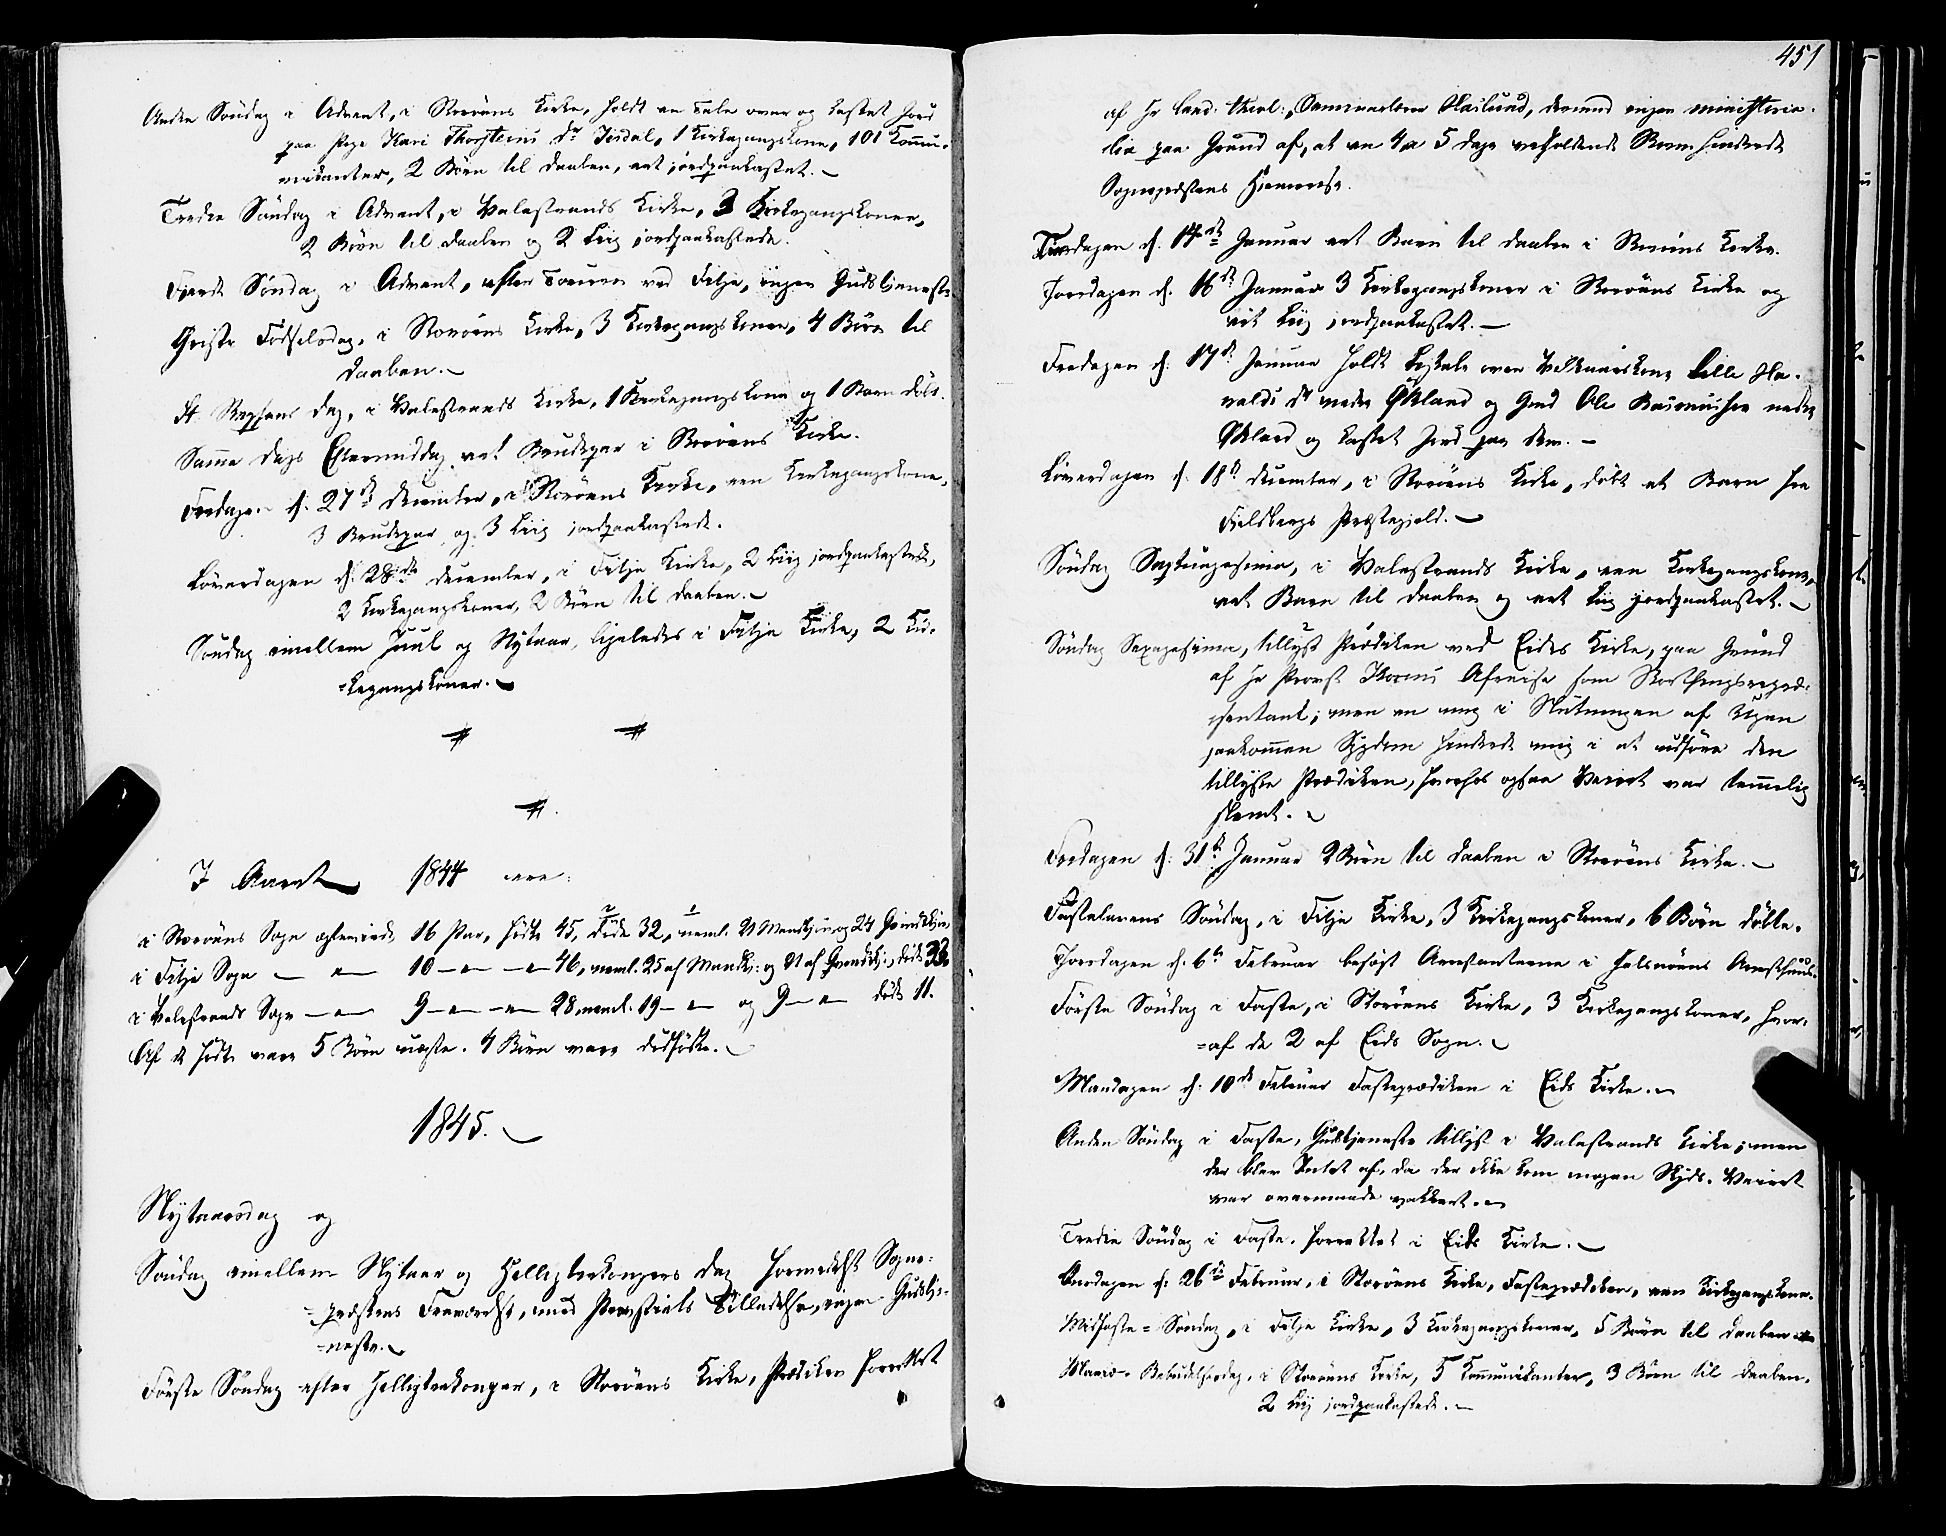 Anden Söndag i Advent, i Storöens Kirke, holdt en Tale over og kastet Jord
paa Pige Kari Thorsteins Dr Isdal, 1 Kirkegangskone, 101 Kommu-
nikanter, 2 Börn til Daaben, eet jordpaakastet.
Tredie Söndag i Advent, i Valestrands Kirke, 3 Kirkegangskoner,
2 Börn til Daaben og 2 Liig jordpaakastede.
Fjerde Söndag i Advent, efter Touren ved Fitje, ingen Gudstjeneste.
Christi Födselsdag, i Storöens Kirke, 3 Kirkegangskoner, 4 Börn til
Daaben.
St. Stephans Dag, i Valestrands Kirke, 1 Kirkegangskone og 1 Barn döbt.
Samme Dags Eftermiddag eet Brudepar i Storöens Kirke.
Fredagen d. 27de December, i Storöens Kirke, een Kirkegangskone,
3 Brudepar og 3 Liig jordpaakastede.
Löverdagen d. 28de December, i Fitje Kirke, 2 Liig jordpaakastede,
2 Kirkegangskoner, 2 Börn til Daaben.
Söndag imellem Juul og Nytaar, ligeledes i Fitje Kirke, 2 Kir-
=kegangskoner.
I Aaret 1844 ere:
i Storöens Sogn ægteviede 16 Par, födte 45, döde 32, neml. 21 Mandkjön og 24 Qvindekjön,
i Fitje Sogn — " — 10 — " — " — 46, neml. 25 af Mandkj: og 21 af Qvindekj:, döde
i Valestrands Sogn — " — 9 — " — " — 28, neml. 19 — " — og 9 — " — döde 11.
Af de födte vare 5 Börn uægte. 4 Börn vare dödfödte.
1845.
Nytaarsdag og
Söndag imellem Nytaar og Helligtrekongers Dag formedelst Sogne-
=præstens Fraværelse, med Provstiets Tilladelse, ingen Gudstje-
=neste.
Förste Söndag efter Helligtrekonger, i Storöens Kirke, Prædiken forrettet
451
af Hr Cand. theol: Seminarlærer Hailund, derimod ingen ministeria-
lia paa Grund af, at en 4 a 5 Dage veholdende Storm hindrede
Sognepræstens Hjemreise.
Tirsdagen d. 14de Januar eet Barn til Daaben i Storöens Kirke.
Torsdagen d. 16de Januar 3 Kirkegangskoner i Storöens Kirke og
eet Liig jordpaakastet.
Fredagen d. 17de Januar holdt Ligtale over Kone Lille Ha-
valds Dr nedre Økland og Gmd Ole Rasmussen nedre
Økland og kastet Jord paa dem.
Löverdagen d. 18de December, i Storöens Kirke, döbt et Barn fra
Fjeldbergs Præstegjeld.
Söndag Septuagesima, i Valestrands Kirke, een Kirkegangskone,
eet Barn til Daaben og eet Liig jordpaakastet.
Söndag Sexagesima, tillyst Prædiken ved Eids Kirke, paa Grund
af Hr Provst Korens Afreise som Storthingsrepræ-
=sentant; men en mig i Slutningen af Ugen
paakommen Sygdom hindrede mig i at udföre den
tillyste Prædiken, hvorhos ogsaa Veiret var temmelig
slemt.
Fredagen d. 31te Januar 2 Börn til Daaben i Storöens Kirke.
Fastelavens Söndag, i Fitje Kirke, 3 Kirkegangskoner, 6 Börn döbte.
Torsdagen d. 6te Februar besögt Arrestanterne i Halsnöens Arresthuus.
Förste Söndag i Faste, i Storöens Kirke, 3 Kirkegangskoner, hvor-
=af de 2 af Eids Sogn.
Mandagen d. 10de Februar Fasteprædiken i Eids Kirke.
Anden Söndag i Faste, Gudstjeneste tillyst i Valestrands Kirke; men
der blev Intet af, da der ikke kom nogen Skyds. Veiret
var overmaade vakkert.
Tredie Söndag i Faste. Forrettet i Eids Kirke.
Onsdagen d. 26de Februar, i Storöens Kirke, Fasteprædiken, een Kirkegangskone.
Midfaste=Söndag, i Fitje Kirke, 3 Kirkegangskoner, 5 Börn til Daaben
Mariæ Bebudelsesdag, i Storöens Kirke, 5 Kommunikanter, 3 Börn til Daaben,
2 Liig jordpaakastede.